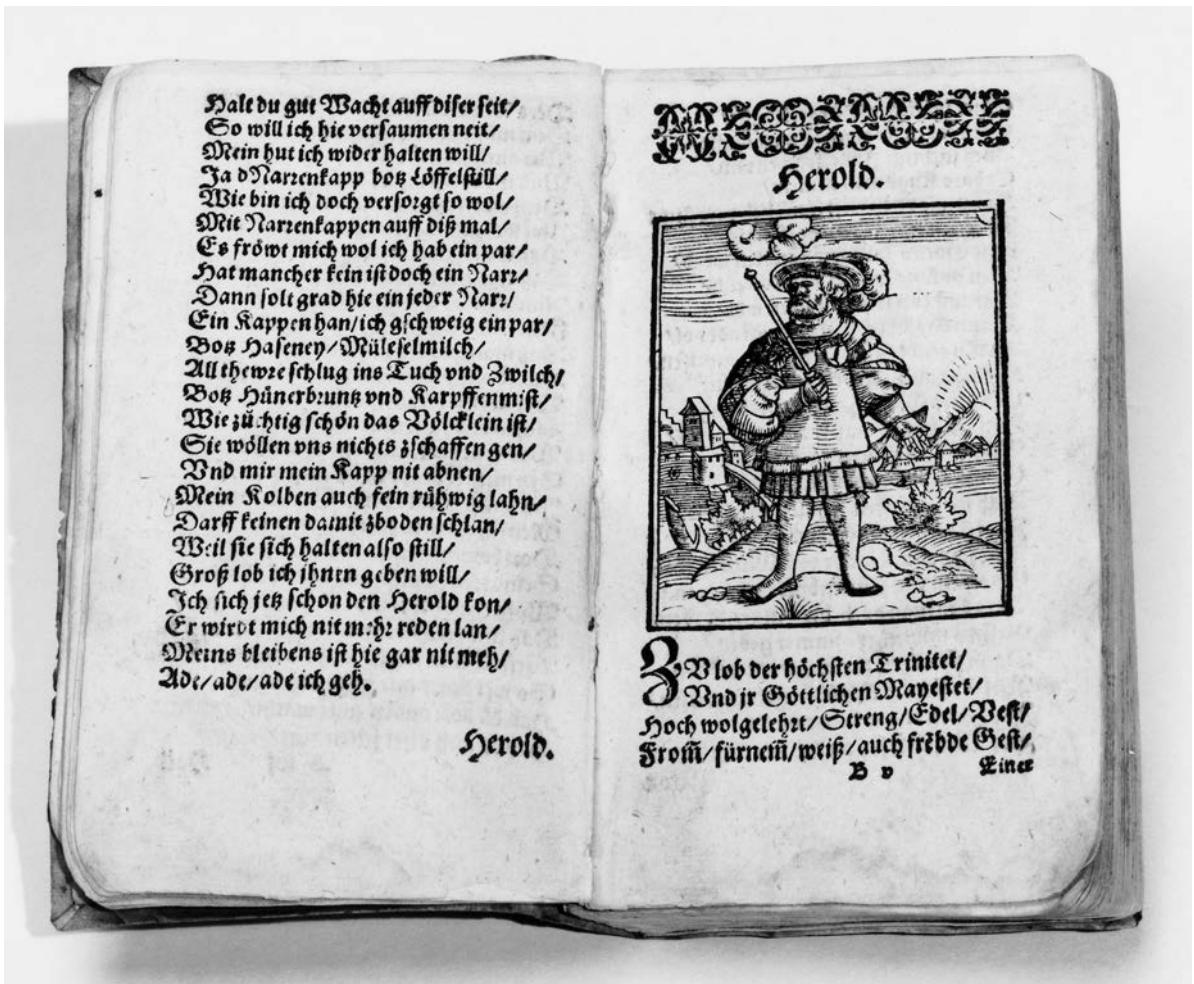 Halt du gut Wacht auff diser seit/
So will ich hie versaumen neit/
Mein hut ich wider halten will/
Ja dNarrenkapp botz Löffelstill/
Wie bin ich doch versorgt so wol/
Mit Narrenkappen auff diß mal/
Es fröwt mich wol ich hab ein par/
Hat mancher kein ist doch ein Narr/
Dann solt grad hie ein jeder Narr/
Ein Kappen han/ich gschweig ein par/
Botz Haseney/Müleselmilch/
All thewre schlug ins Tuch vnd Zwilch/
Botz Hünerbruntz vnd Karpffenmist/
Wie züchtig schön das Völcklein ist/
Sie wöllen vns nichts zschaffen gen/
Vnd mir mein Kapp nit abnen/
Mein Kolben auch fein rühwig lahn/
Darff keinen damit zboden schlan/
Weil sie sich halten also still/
Groß lob ich jhnen geben will/
Ich sich jetz schon den Herold kon/
Er wirdt mich nit mehr reden lan/
Meins bleibens ist hie gar nit meh/
Ade/ade/ade ich geh.
Herold.
Herold.
ZV lob der höchsten Trinitet/
Vnd jr Göttlichen Mayestet/
Hoch wolgelehrt/Streng/Edel/Vest/
From̃/fürnem̃/weiß/auch frẽbde Gest/
B v Einer